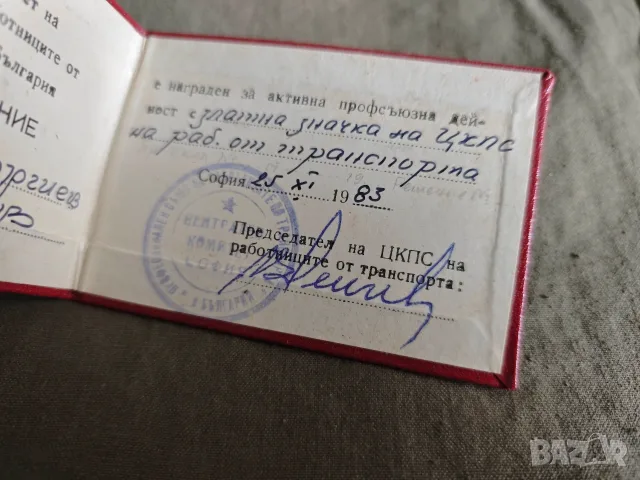 ет на
аботниците от
България
НИЕ
оргиев
ов
е награден за активна профсъюзна дей-
ност с златна значка на ЦКПС
на раб. от транспорта
София 25 XI 1983
Председател на ЦКПС на
работниците от транспорта:
ЦЕНТРАЛЕН
КОМИТЕТ
СОФИЯ
В БЪЛГАРИЯ
BAZAR